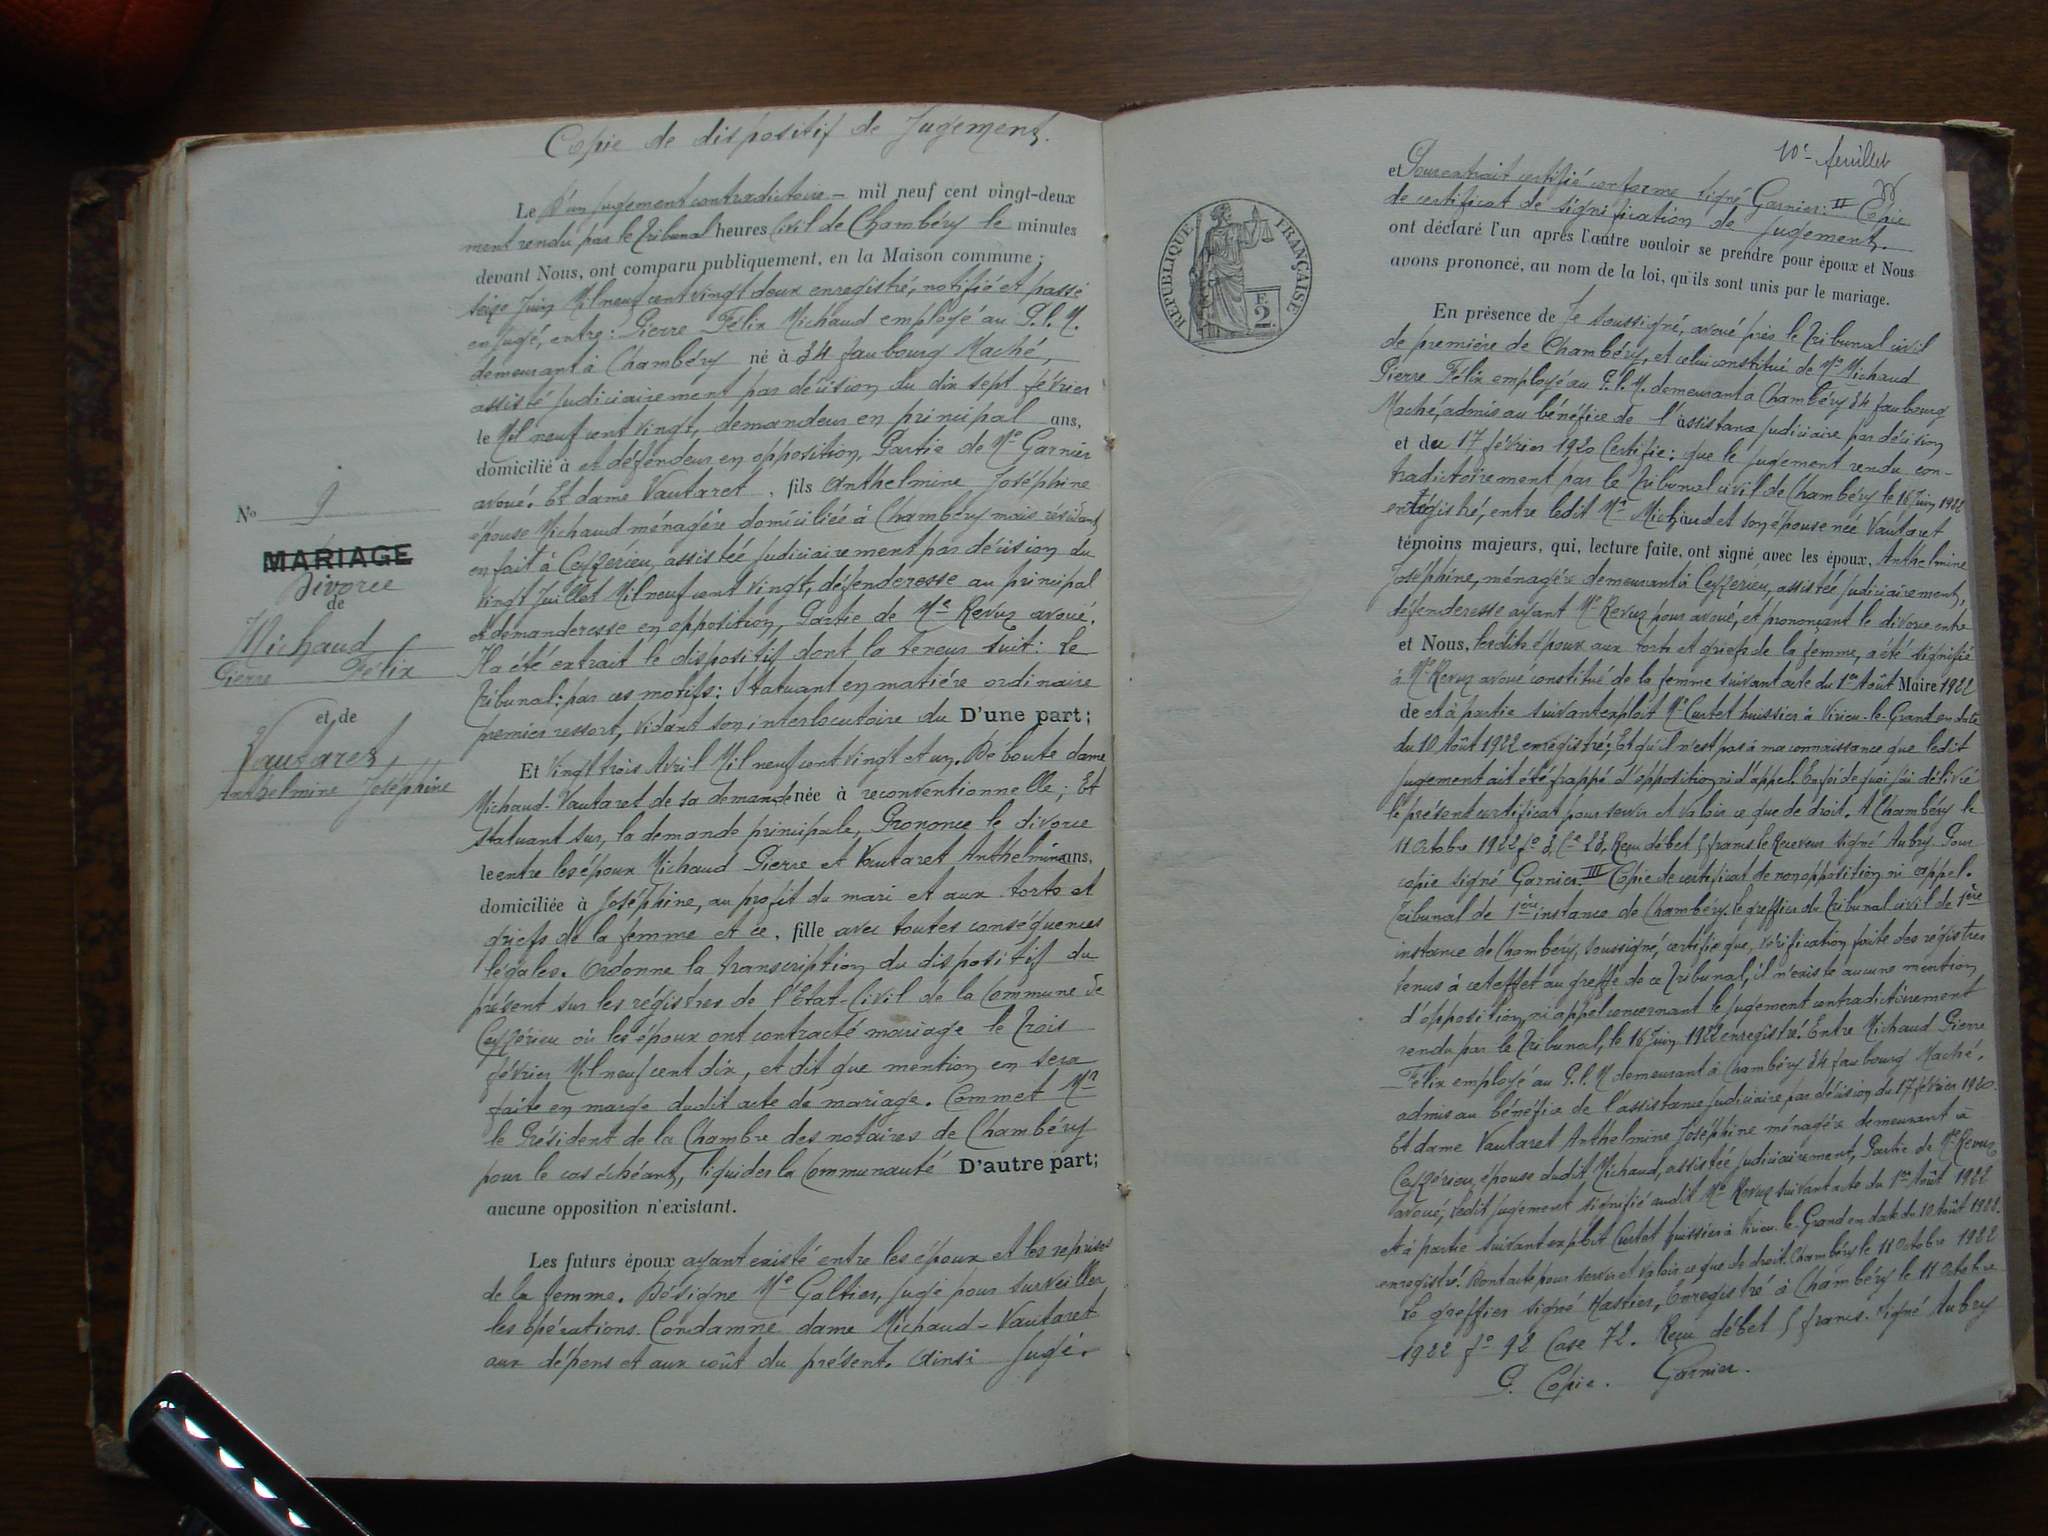 Copie de dispositif de Jugement.
Le D'un jugement contradictoire - mil neuf cent vingt-deux
ment rendu par le Tribunal heures Civil de Chambéry le minutes
devant Nous, ont comparu publiquement, en la Maison commune ;
seize Juin Mil neuf cent vingt deux enregistré, notifié et passé
en jugé, entre: Pierre Félix Michaud employé au P.l.M.
demeurant à Chambéry né à 34 faubourg Maché,
assisté judiciairement par décision du dix sept février
le Mil neuf cent vingt, demandeur en principal ans,
domicilié à et défendeur en opposition, Partie de Me Garnier
avoué. Et dame Vautaret , fils Anthelmine Joséphine
épouse Michaud ménagère domiciliée à Chambéry mais résidant
en fait à Ceyzérieu, assistée judiciairement par décision du
vingt Juillet Mil neuf cent vingt, défenderesse au principal
et demanderesse en opposition, Partie de Me Revuz avoué.
Il a été extrait le dispositif dont la teneur suit: Le
Tribunal: par ces motifs: Statuant en matière ordinaire
premier ressort, vidant son interlocutoire du D'une part;
Et vingt trois Avril Mil neuf cent vingt et un. Déboute dame
Michaud-Vautaret de sa demande née à reconventionnelle; Et
statuant sur, la demande principale, Prononce le divorce
le entre les époux Michaud Pierre et Vautaret Anthelmine ans,
domiciliée à Joséphine, au profit du mari et aux torts et
griefs de la femme et ce, fille avec toutes conséquences
légales. Ordonne la transcription du dispositif du
présent sur les régistres de l'Etat-Civil de la Commune de
Ceyzérieu où les époux ont contracté mariage le Trois
février Mil neuf cent dix, et dit que mention en sera
faite en marge dudit acte de mariage. Commet Mr
le Président de la Chambre des notaires de Chambéry
pour le cas échéant, liquider la Communauté D'autre part;
aucune opposition n'existant.
Les futurs époux ayant existé entre les époux et les reprises
de la femme. Désigne Me Galtier, juge pour surveiller
les opérations. Condamne dame Michaud-Vautaret
aux dépens et aux coût du présent. Ainsi jugé.
No 9
MARIAGE
Divorce
de
Michaud
Pierre Félix
et de
Vautaret,
Anthelmine Joséphine
REPUBLIQUE FRANÇAISE
F.
2
10e feuillet
et Pour extrait certifié conforme signé Garnier: II Copie
de certificat de signification de jugement.
ont déclaré l'un après l'autre vouloir se prendre pour époux et Nous
avons prononcé, au nom de la loi, qu'ils sont unis par le mariage.
En présence de Je soussigné, avoué près le Tribunal civil
de première de Chambéry, et celui constitué de Mr Michaud
Pierre Félix employé au P.l.M. demeurant à Chambéry 34 faubourg
Maché, admis au bénéfice de l'assistance judiciaire par décision
et du 17 février 1920 Certifie: que le jugement rendu con-
tradictoirement par le Tribunal civil de Chambéry le 16 Juin 1922
enregistré, entre ledit Mr Michaud et son épouse née Vautaret
témoins majeurs, qui, lecture faite, ont signé avec les époux, Anthelmine
Joséphine, ménagère demeurant à Ceyzérieu, assistée judiciairement,
défenderesse ayant Me Revuz pour avoué, et prononçant le divorce entre
et Nous, lesdits époux aux torts et griefs de la femme, a été signifié
à Me Revuz avoué constitué de la femme suivant acte du 1er Août Maire 1922
de et à partie suivant exploit Me Curtet huissier à Virieu-le-Grand en date
du 10 Août 1922 enregistré; Et qu'il n'est pas à ma connaissance que ledit
jugement ait été frappé d'opposition ni d'appel. En foi de quoi j'ai délivré
le présent certificat pour servir et valoir ce que de droit. A Chambéry le
11 Octobre 1922 fo 2 Ce 23. Reçu débet 5 francs le Receveur signé Aubry Pour
copie signé Garnier. III Copie de certificat de non opposition ni appel.
Tribunal de 1ère instance de Chambéry. Le greffier du Tribunal civil de 1ère
instance de Chambéry, soussigné, certifie que, vérification faite des régistres
tenus à cet effet au greffe de ce Tribunal, il n'existe aucune mention
d'opposition, ni appel concernant le jugement contradictoirement
rendu par le Tribunal, le 16 Juin 1922 enregistré. Entre Michaud Pierre
Félix employé au P.l.M demeurant à Chambéry 34 faubourg Maché.
admis au bénéfice de l'assistance judiciaire par décision du 17 février 1920.
Et dame Vautaret Anthelmine Joséphine ménagère demeurant à
Ceyzérieu, épouse dudit Michaud, assistée judiciairement, Partie de Me Revuz
avoué; ledit jugement signifié audit Me Revuz suivant acte du 1er Août 1922
et à partie suivant exploit Curtet huissier à Virieu-le-Grand en date du 10 Août 1922.
enregistré. Dont acte pour servir et valoir ce que de droit. Chambéry le 11 Octobre 1922
Le greffier signé Mastier, Enregistré à Chambéry le 11 Octobre
1922 fo 92 Case 72. Reçu débet 5 francs. signé Aubry
P. Copie. Garnier.